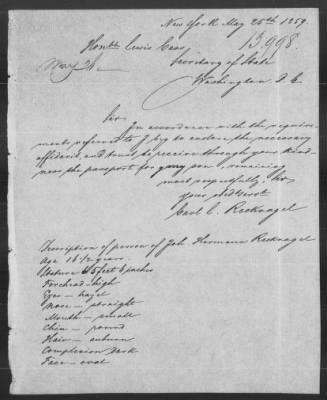 New York May 25th 1859.
Honble Lewis Cass 13,998.
Secretary of State
May 26
Washington, D. C.
Sir,
In accordance with the require-
ments referred to I beg to enclose the necessary
affidavit, and trust to receive through your kind-
ness the passport for my son, remaining
most respectfully, Sir,
your obedt servt
Carl C. Recknagel
Description of person of Joh. Hermann Recknagel
Age 16 1/2 years.
Stature 5 feet 6 inches
Forehead - high
Eyes - hazel
Nose - straight
Mouth - small
Chin - round
Hair - auburn
Complexion dark
Face - oval